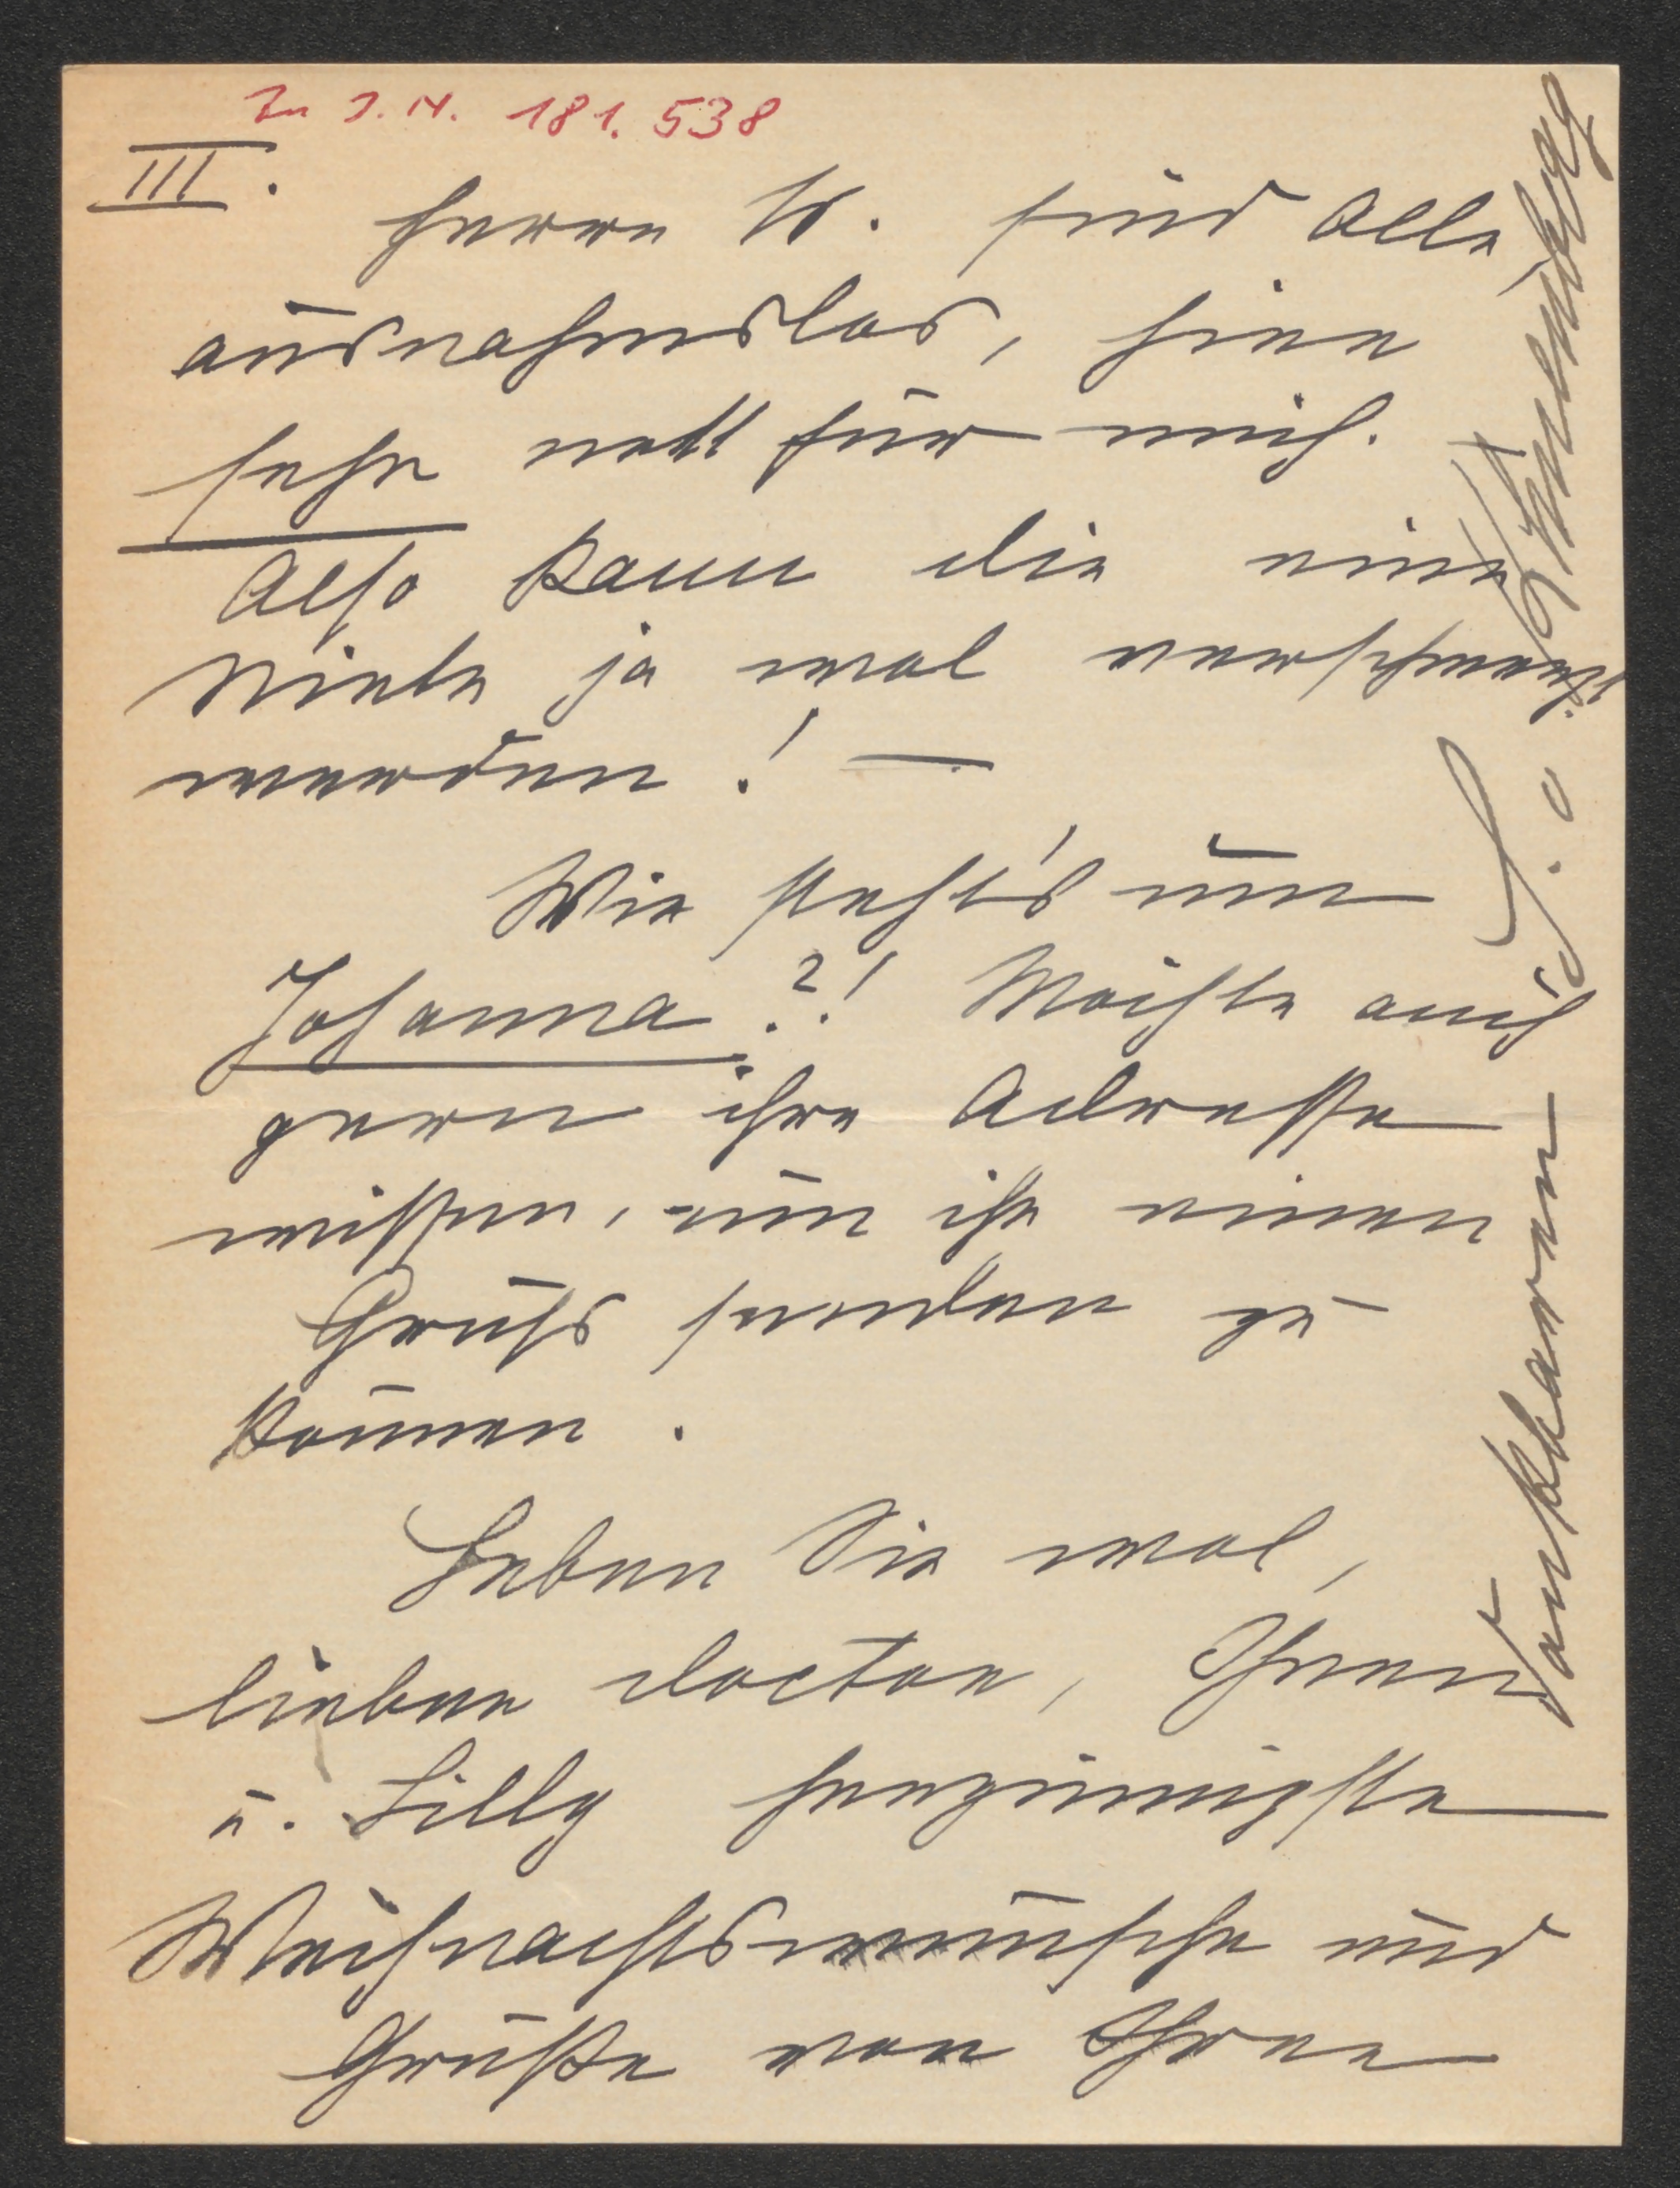 Zu I.N. 181.538
III.
Herrn W. sind alle
ausnahmslos, hier
sehr nett für mich.
Also kann die eine
Niete ja mal verschmerzt
werden! —
Wie steht's um
Johanna?! Möchte auch
gern ihre Adresse
wissen, um ihr einen
Gruß senden zu
können.
Leben Sie wol,
lieber Doctor, Ihnen
u. Lilly herzinnigste
Weihnachtswünsche und
Grüße von Ihrer
dankbaren